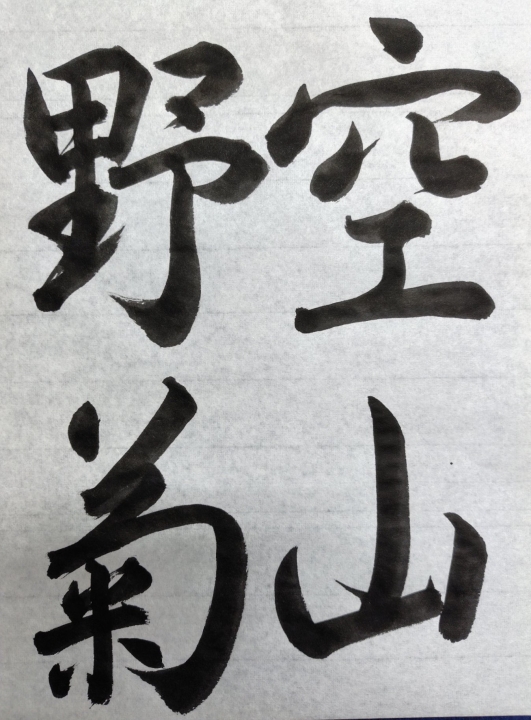 空山
野菊